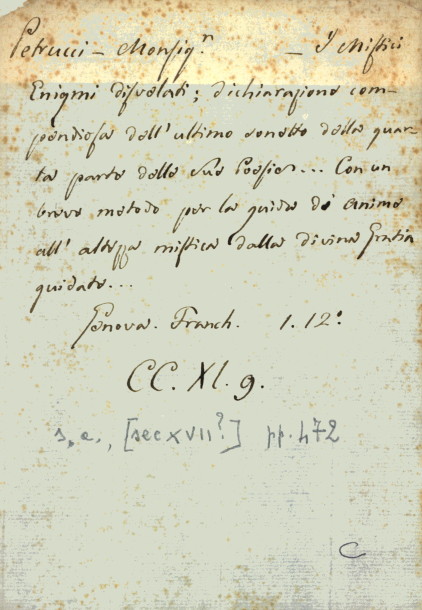 Petrucci - Monsig.r - I Mistici
Enigmi disvelati; dichiarazione com-
pendiosa dell'ultimo sonetto della quar-
ta parte delle sue Poesie... Con un
breve metodo per la guida di anime
all'altezza mistica dalla divina Gratia
guidate...
Genova. Franch. 1. 12.o
CC. XI. 9.
s.a., [sec XVII?] pp. 472
C